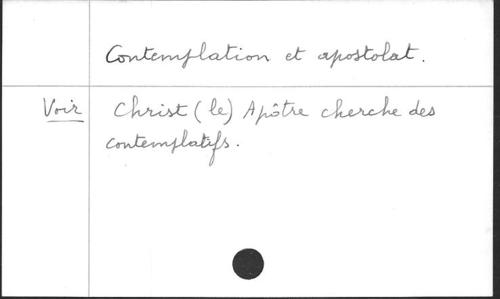 Contemplation et apostolat.
Voir Christ (le) Apôtre cherche des
contemplatifs.